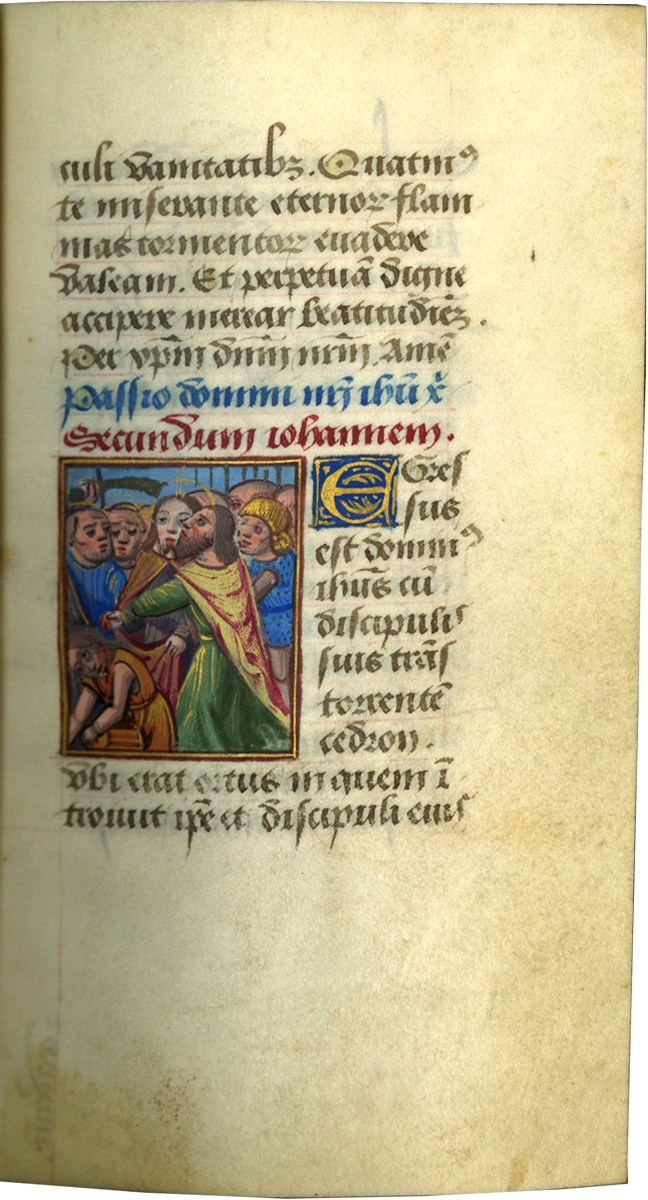 culi vanitatibꝫ. Quatinꝰ
te miserante eternoꝝ flam
mas tormentoꝝ euadere
valeam. Et perpetuā digne
accipere merear beatitudinēꝫ.
Per xp̄m dn̄m nr̄m. Amē
Passio domini nr̄i ihū x̄
Secundum iohannem.
Egres
sus
est dominꝰ
ihūs cū
discipulis
suis trās
torrentē
cedron.
vbi erat ortus in quem ī
troiuit ip̄e et discipuli eius